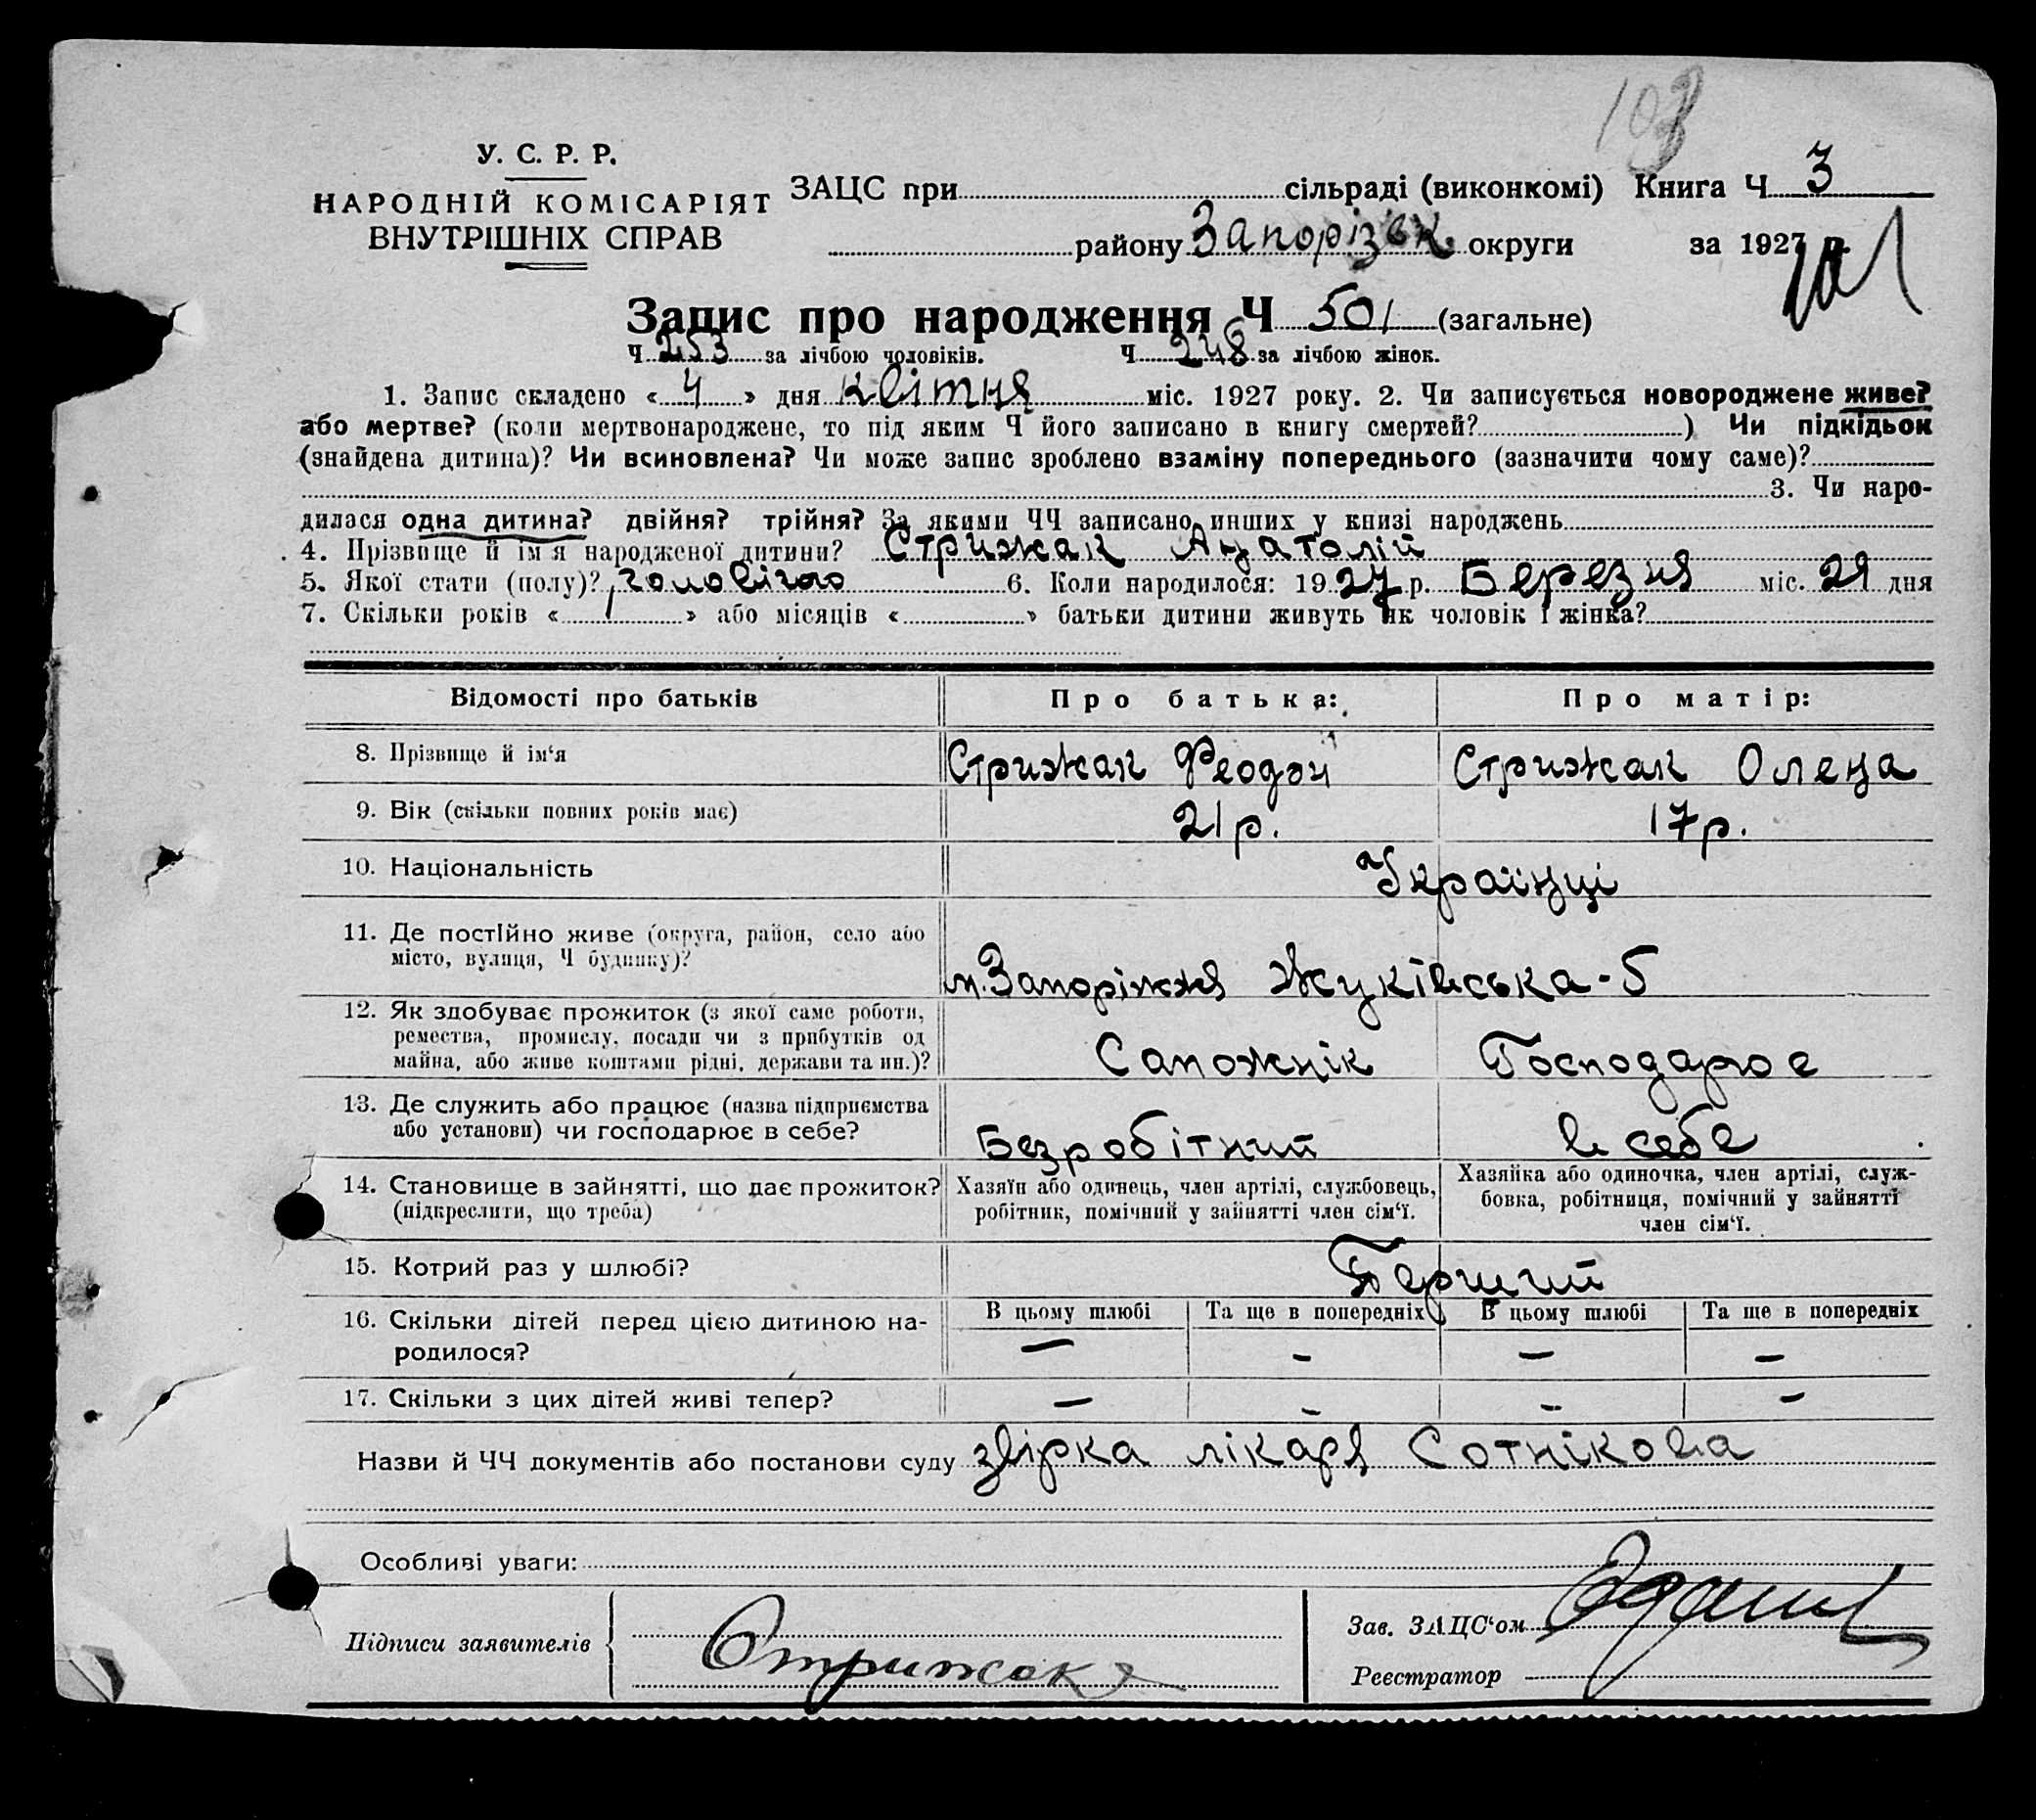 103
У. С. Р. Р.
НАРОДНІЙ КОМІСАРІЯТ
ВНУТРІШНІХ СПРАВ
ЗАЦС при сільраді (виконкомі) Книга Ч 3
району Запорізьк округи за 1927 р.
Запис про народження Ч 501 (загальне)
Ч 253 за лічбою чоловіків. Ч 248 за лічбою жінок.
1. Запис складено « 4 » дня квітня міс. 1927 року. 2. Чи записується новороджене живе?
або мертве? (коли мертвонароджене, то під яким Ч його записано в книгу смертей? ) Чи підкідьок
(знайдена дитина)? Чи всиновлена? Чи може запис зроблено взаміну попереднього (зазначити чому саме)?
3. Чи наро-
дилася одна дитина? двійня? трійня? За якими ЧЧ записано инших у книзі народжень
4. Прізвище й ім'я народженої дитини? Стрижак Анатолій
5. Якої стати (полу)? чоловічого 6. Коли народилося: 1927 р. Березня міс. 29 дня
7. Скільки років « 1 » або місяців « » батьки дитини живуть як чоловік і жінка?
Відомості про батьків Про батька: Про матір:
8. Прізвище й ім'я Стрижак Феодой Стрижак Олена
9. Вік (скільки повних років має) 21 р. 17 р.
10. Національність Українці
11. Де постійно живе (округа, район, село або
місто, вулиця, Ч будинку)?
м. Запоріжжя Жуківська - 5
12. Як здобуває прожиток (з якої саме роботи,
ремества, промислу, посади чи з прибутків од
майна, або живе коштами рідні, держави та ин.)?
Сапожнік Господарює
13. Де служить або працює (назва підприємства
або установи) чи господарює в себе?
Безробітний в себе
14. Становище в зайнятті, що дає прожиток?
(підкреслити, що треба)
Хазяїн або одинець, член артілі, службовець,
робітник, помічний у зайнятті член сім'ї.
Хазяйка або одиночка, член артілі, служ-
бовка, робітниця, помічний у зайнятті
член сім'ї.
15. Котрий раз у шлюбі? Перший
16. Скільки дітей перед цією дитиною на-
родилося?
В цьому шлюбі Та ще в попередніх В цьому шлюбі Та ще в попередніх
— — — —
17. Скільки з цих дітей живі тепер? — — — —
Назви й ЧЧ документів або постанови суду звірка лікаря Сотнікова
Особливі уваги:
Підписи заявителів Стрижак
Зав. ЗАЦС'ом
Реєстратор